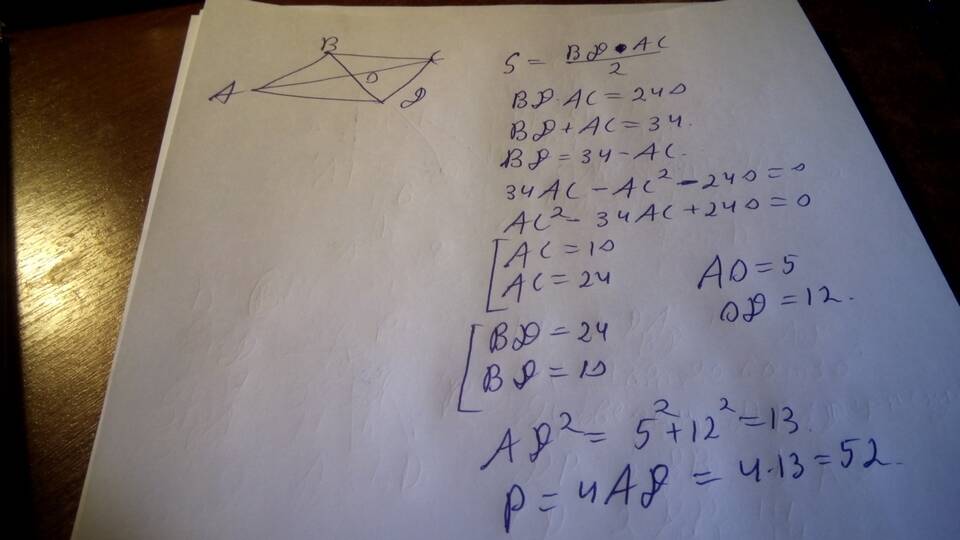 B
C
O
A
D
S = BD • AC / 2
BD · AC = 240
BD + AC = 34.
BD = 34 - AC.
34AC - AC² - 240 = 0
AC² - 34AC + 240 = 0
[ AC = 10
AC = 24
AO = 5
OD = 12.
[ BD = 24
BD = 10
AD² = 5² + 12² = 13.
P = 4AD = 4·13 = 52.